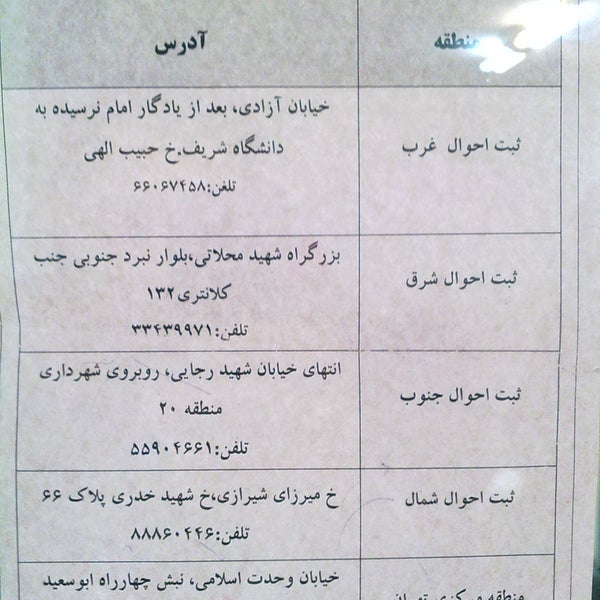 منطقه
آدرس
ثبت احوال غرب
خیابان آزادی، بعد از یادگار امام نرسیده به
دانشگاه شریف.خ حبیب الهی
تلفن:۶۶۰۶۷۴۵۸
ثبت احوال شرق
بزرگراه شهید محلاتی،بلوار نبرد جنوبی جنب
کلانتری۱۳۲
تلفن:۳۳۴۳۹۹۷۱
ثبت احوال جنوب
انتهای خیابان شهید رجایی، روبروی شهرداری
منطقه ۲۰
تلفن:۵۵۹۰۴۶۶۱
ثبت احوال شمال
خ میرزای شیرازی،خ شهید خدری پلاک ۶۶
تلفن:۸۸۸۶۰۴۴۶
منطقه مرکزی تهران
خیابان وحدت اسلامی، نبش چهارراه ابوسعید